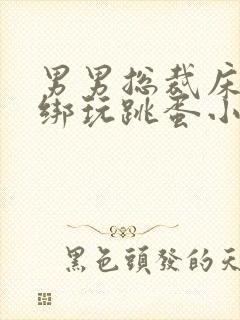 男男总裁床
绑玩跳蛋小
黑色頭發的天